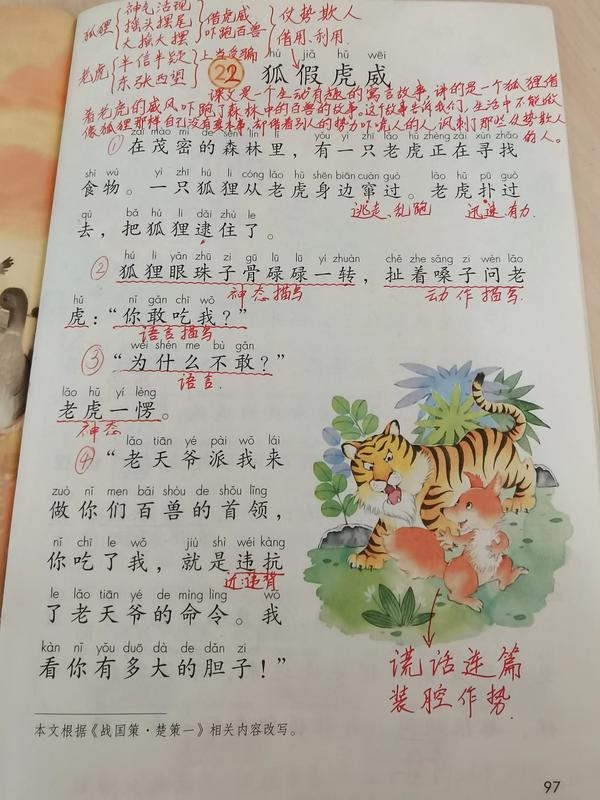 狐狸 { 神气活现 摇头摆尾 大摇大摆 } 借虎威 吓跑百兽 } 仗势欺人 借用、利用
老虎 { 半信半疑 东张西望 } 上当受骗
hú jiǎ hǔ wēi
22 狐假虎威
课文是一个生动有趣的寓言故事,讲的是一个狐狸借
着老虎的威风吓跑了森林中的百兽的故事。这个故事告诉我们,生活中不能做
像狐狸那样自己没有真本事,却借着别人的势力吓唬人的人,讽刺了那些仗势欺人
的人。
zài mào mì de sēn lín lǐ yǒu yì zhī lǎo hǔ zhèng zài xún zhǎo
① 在茂密的森林里,有一只老虎正在寻找
shí wù yì zhī hú li cóng lǎo hǔ shēn biān cuàn guò lǎo hǔ pū guò
食物。一只狐狸从老虎身边窜过。老虎扑过
逃走、乱跑 迅速、有力
qù bǎ hú li dǎi zhù le
去,把狐狸逮住了。
hú li yǎn zhū zi gū lū lū yí zhuàn chě zhe sǎng zi wèn lǎo
② 狐狸眼珠子骨碌碌一转,扯着嗓子问老
神态描写 动作描写
hǔ nǐ gǎn chī wǒ
虎:“你敢吃我?”
语言描写
wèi shén me bù gǎn
③ “为什么不敢?”
语言
lǎo hǔ yí lèng
老虎一愣。
神态
lǎo tiān yé pài wǒ lái
④ “老天爷派我来
zuò nǐ men bǎi shòu de shǒu lǐng
做你们百兽的首领,
nǐ chī le wǒ jiù shì wéi kàng
你吃了我,就是违抗
近:违背
le lǎo tiān yé de mìng lìng wǒ
了老天爷的命令。我
kàn nǐ yǒu duō dà de dǎn zi
看你有多大的胆子!”
谎话连篇
装腔作势
本文根据《战国策·楚策一》相关内容改写。
97